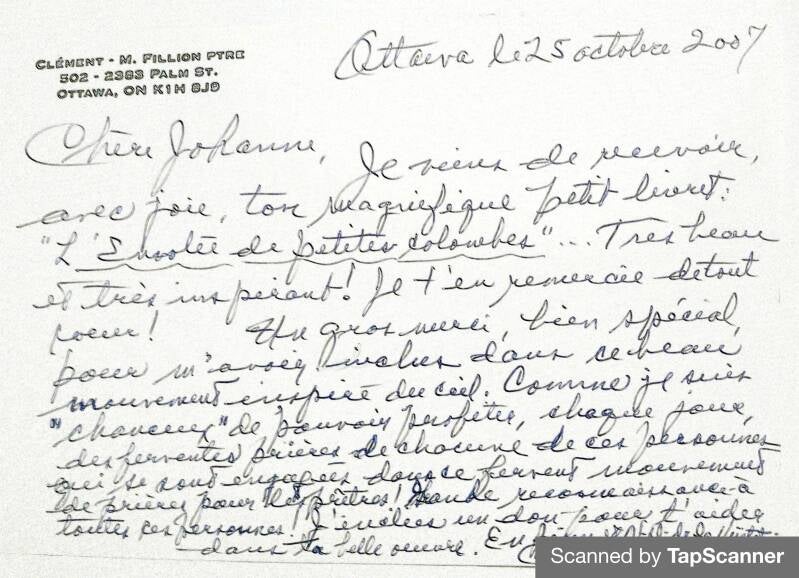 CLÉMENT - M. FILLION PTRE
502 - 2383 PALM ST.
OTTAWA, ON K1H 8J9
Ottawa le 25 octobre 2007
Chère Johanne,
Je viens de recevoir,
avec joie, ton magnifique petit livret:
"L'Envolée de petites colombes"... Très beau
et très inspirant! Je t'en remercie de tout
coeur! Un gros merci, bien spécial,
pour m'avoir inclus dans ce beau
mouvement inspiré du ciel. Comme je suis
"chanceux" de pouvoir profiter, chaque jour,
des ferventes prières de chacune de ces personnes
qui se sont engagées dans ce fervent mouvement
de prières pour les prêtres! Grande reconnaissance à
toutes ces personnes! J'inclus un don pour t'aider
dans ta belle oeuvre. En
Scanned by TapScanner